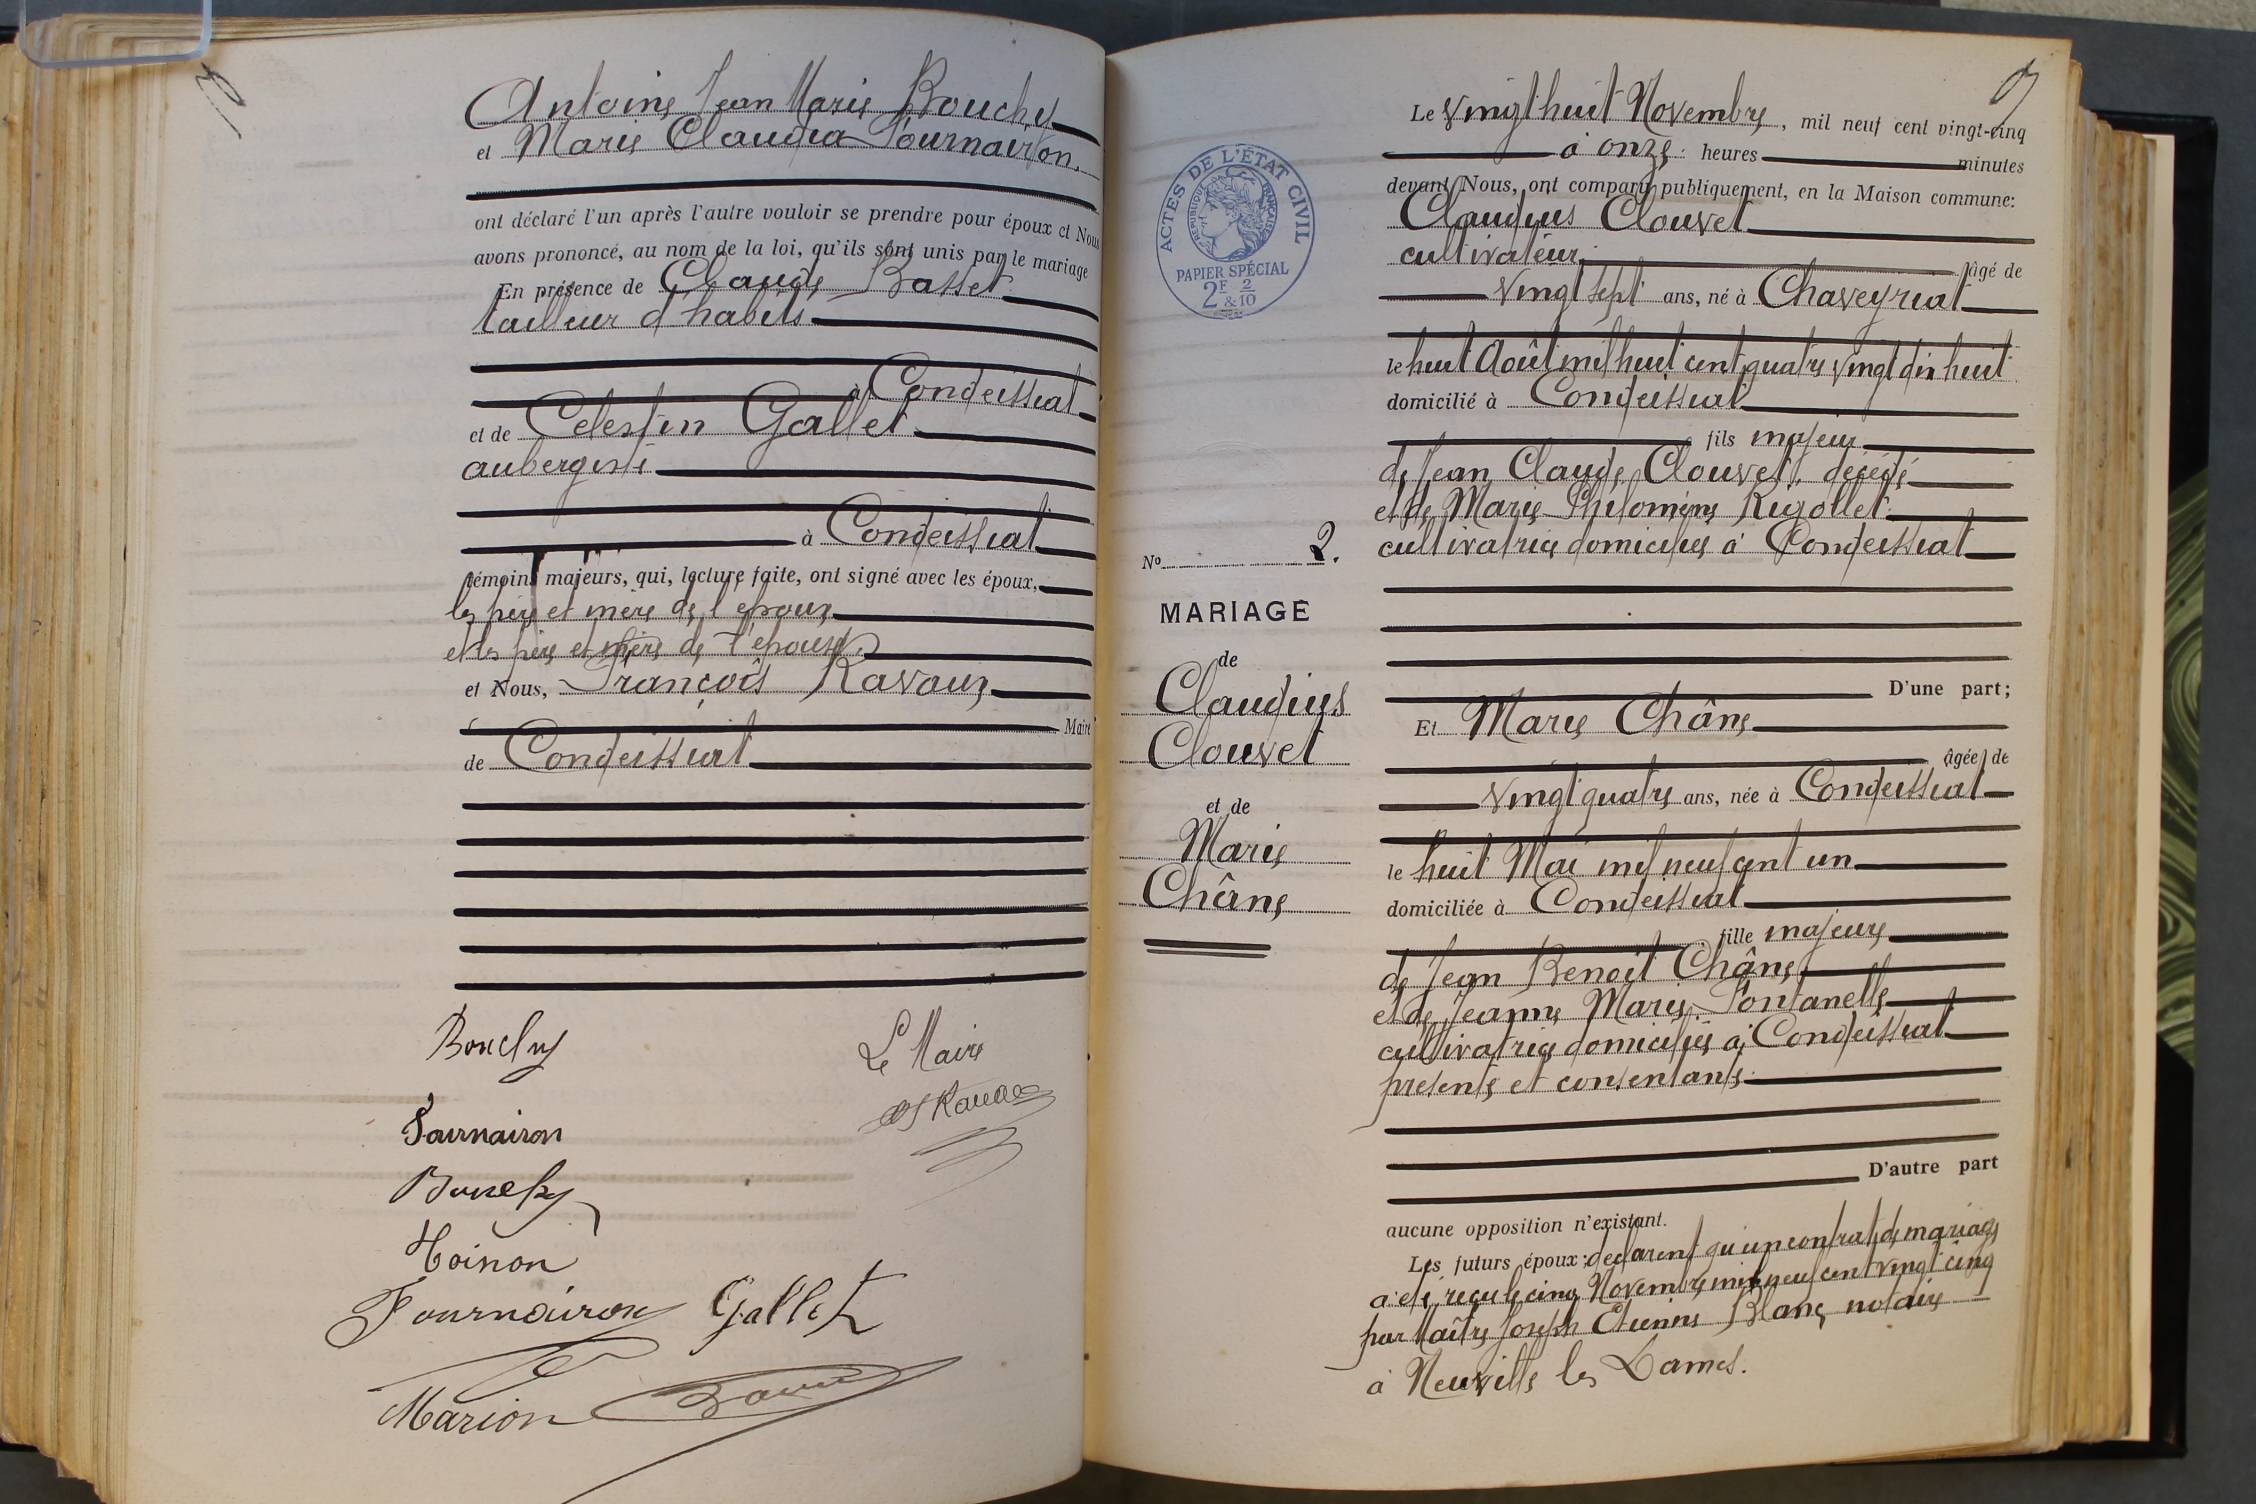 Antoine Jean Marie Bouchy
et Marie Claudia Fournairon.
ont déclaré l'un après l'autre vouloir se prendre pour époux et Nous
avons prononcé, au nom de la loi, qu'ils sont unis par le mariage
En présence de Claude Basset
tailleur d'habits
à Condeissiat
et de Celestin Gallet
aubergiste
à Condeissiat
témoins majeurs, qui, lecture faite, ont signé avec les époux,
les père et mère de l'époux
et les père et mère de l'épouse
et Nous, François Ravaux
Maire
de Condeissiat
Bouchy
Le Maire
Fournairon
Bouchy
Moinon
Fournairon Gallet
Marion
ACTES DE L'ÉTAT CIVIL
RÉPUBLIQUE FRANÇAISE
PAPIER SPÉCIAL
2F & 2/10
No 2.
MARIAGE
de
Claudius
Clouvet
et de
Marie
Châne
Le vingt huit Novembre, mil neuf cent vingt-cinq
à onze heures minutes
devant Nous, ont comparu publiquement, en la Maison commune:
Claudius Clouvet
cultivateur âgé de
vingt sept ans, né à Chaveyriat
le huit Août mil huit cent quatre vingt dix huit
domicilié à Condeissiat
fils majeur
de Jean Claude Clouvet, décédé
et de Marie Philomène Rigollet
cultivatrice domiciliée à Condeissiat
D'une part;
Et Marie Châne
âgée de
vingt quatre ans, née à Condeissiat
le huit Mai mil neuf cent un
domiciliée à Condeissiat
fille majeure
de Jean Benoît Châne
et de Jeanne Marie Fontanelle
cultivatrice domiciliés à Condeissiat
présents et consentants
D'autre part
aucune opposition n'existant.
Les futurs époux: déclarent qu'un contrat de mariage
a été reçu le cinq Novembre mil neuf cent vingt cinq
par Maître Joseph Etienne Blanc notaire
à Neuville les Dames.